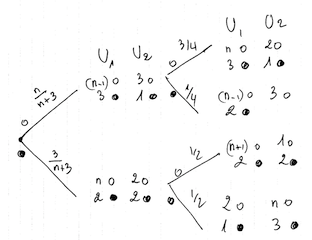 U1 U2
n/n+3
(n-1) o 3 o
3 ● 1 ●
3/4
1/4
U1 U2
n o 2 o
3 ● 1 ●
(n-1) o 3 o
2 ●
o
●
3/n+3
n o 2 o
2 ● 2 ●
o
●
1/2
1/2
(n+1) o 1 o
2 ● 2 ●
2 o n o
1 ● 3 ●